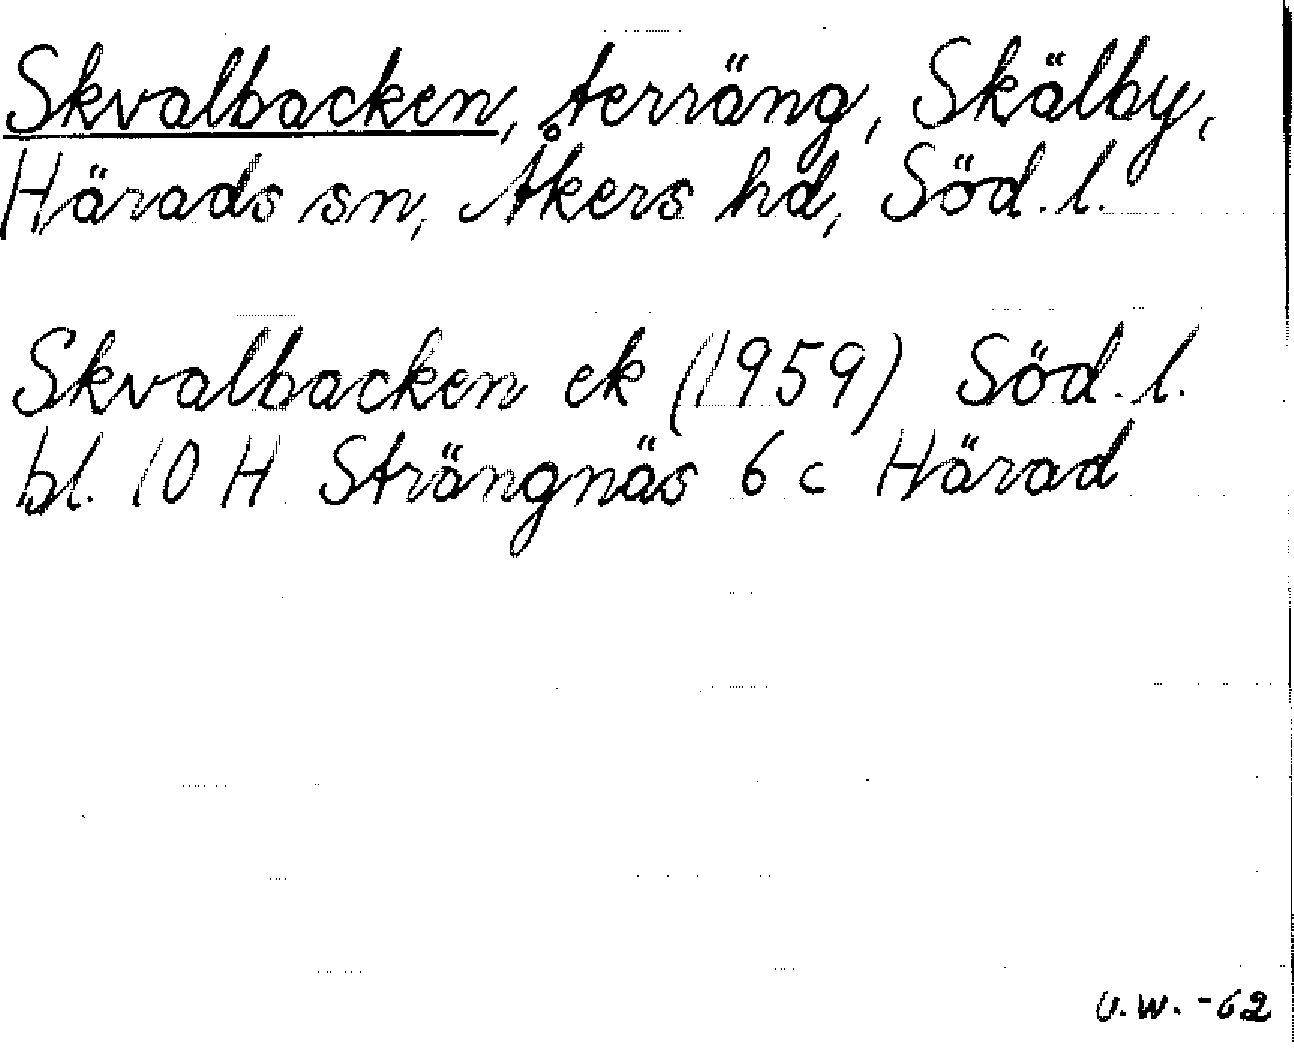 Skvalbacken, terräng, Skälby,
Härads sn, Åkers hd, Söd. l.
Skvalbacken ek (1959) Söd. l.
bl. 10 H Strängnäs 6 c Härad
U.W. -62